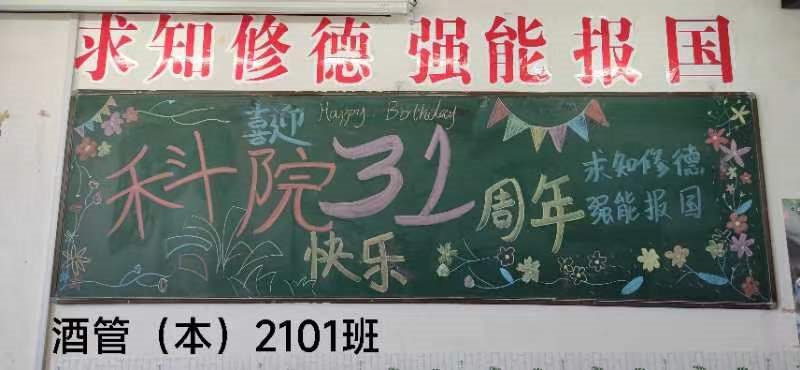 求知修德 强能报国
喜迎 Happy Birthday
科院31周年
快乐
求知修德
强能报国
酒管（本）2101班